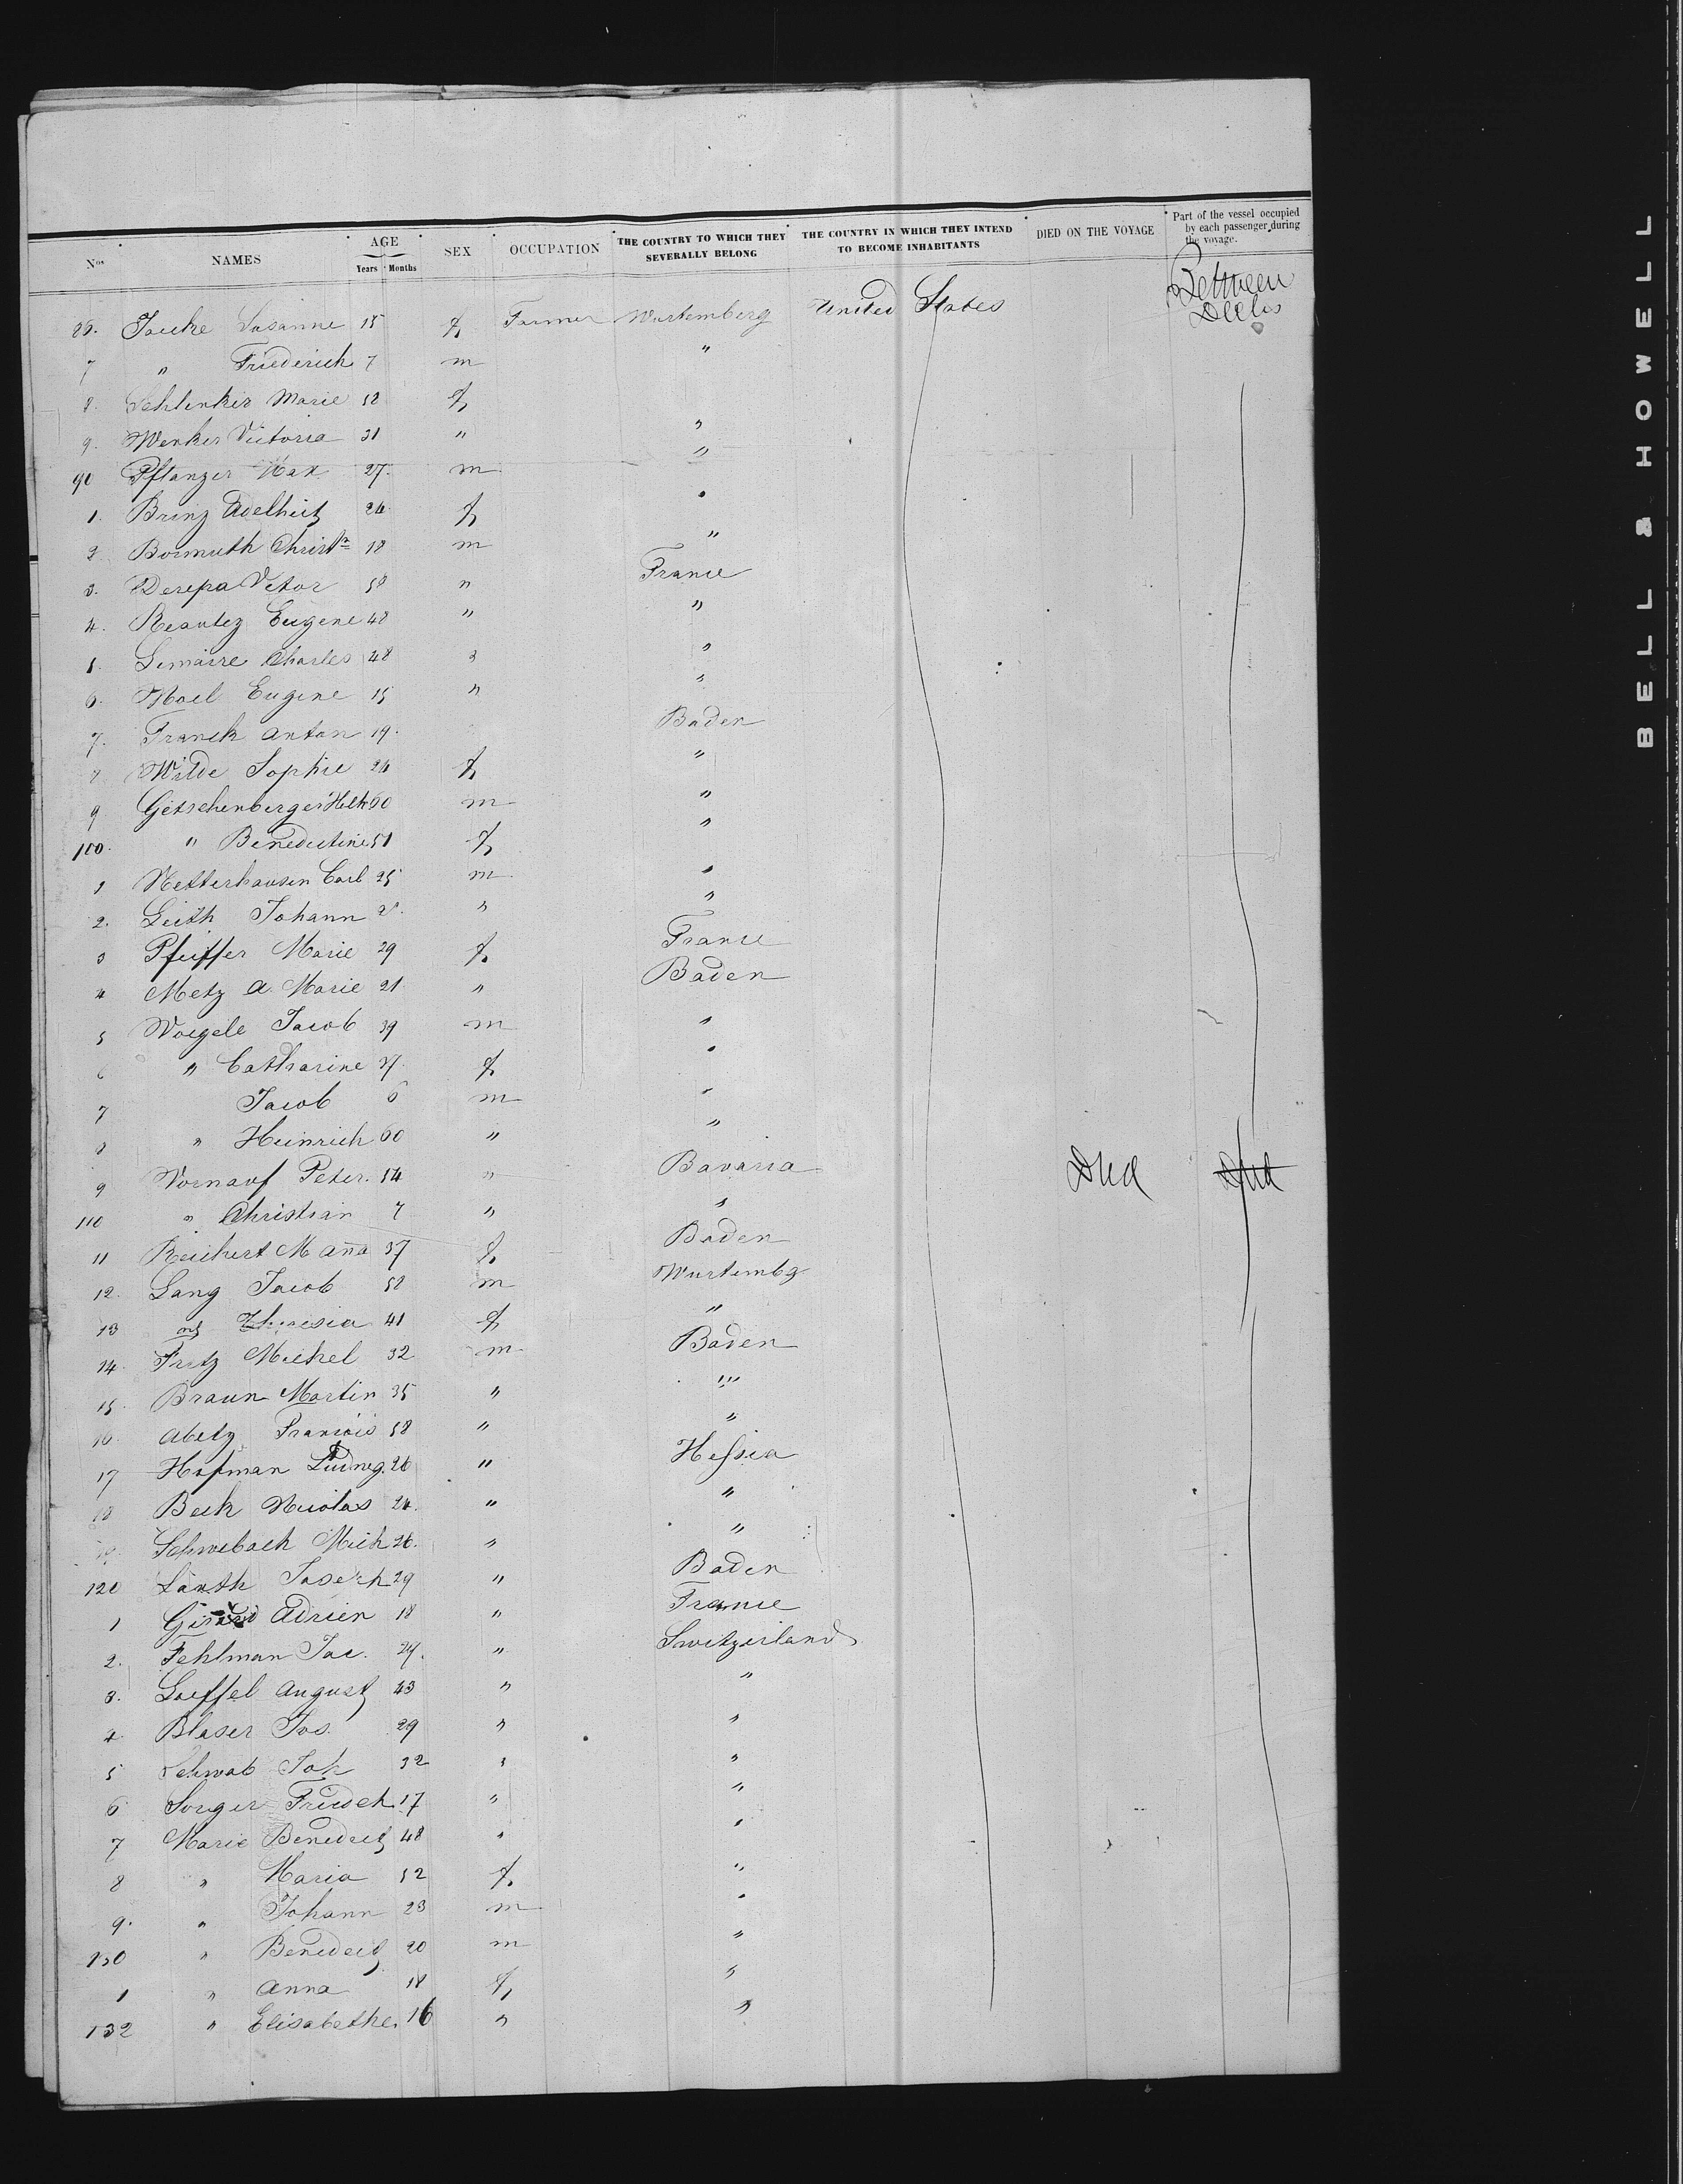 Nos NAMES AGE Years Months SEX OCCUPATION THE COUNTRY TO WHICH THEY SEVERALLY BELONG THE COUNTRY IN WHICH THEY INTEND TO BECOME INHABITANTS DIED ON THE VOYAGE Part of the vessel occupied by each passenger during the voyage.
Between Decks
Susanne 15 f Farmer Wurtemberg United States
7 " Friederich 7 m "
8. Schlenker Marie f
9. Wenker Victoria 31 " "
90 Pflanzer Max 27. m "
1. Brinz Adelheit 24 f "
2 Bormuth Christn 18 m "
3. 58 " France
4. Eugene 48 " "
5. Lemaire Charles 48 " "
6. Noel Eugene 15 " "
7. Franck Anton 19. Baden
8 Wilde Sophie 24 f "
9 Getschenberger 60 m "
100. " Benedictine 51 f "
1 Netterhausen Carl 25 m "
2. Leith Johann " "
3 Pfeiffer Marie 29 f. France
4 Metz A. Marie 21 " Baden
5 Voegele Jacob 39 m "
6 " Catharine 37 f "
7 Jacob 6 m "
8 " Heinrich 60 " "
9 Peter. 54 " Bavaria Died Died
110 " Christian 7 " "
11 Reichert M Anna 37 f. Baden
12. Lang Jacob 58 m Wurtembg
13 Theresia 41 f "
14. Fritz Michel 32 m Baden
15. Braun Martin 35 " "
16. Abetz Francois 58 " "
17 Hofman Ludwig 26 " Hessia
18 Beck Nicolas 24. " "
19. Schwebach Mich 26. " "
120 Joseph 29 " Baden
1 Girard Adrien 18 " France
2. Fehlman Jac. 24. " Switzerland
3. Loeffel August 43 " "
4. Blaser Jos. 29 " "
5 Schwab Joh 32 " "
6 Sorger Friedch 17 " "
7 Marie Benedict 48 " "
8 " Maria 52 f. "
9. " Johann 23 m "
130 " Benedict 20 m "
1 " Anna 18 f "
132 " Elisabethe. 16 " "
BELL & HOWELL